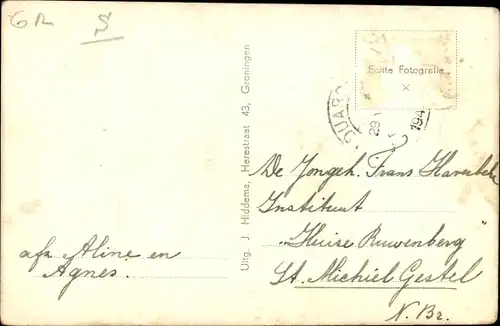 GR
Echte Fotografie
x
29
194
Uitg. J. Hiddema, Herestraat 43, Groningen
De Jongeh. Frans Haverbeke
Instituut
"Huise Ruwenberg"
St. Michiel Gestel
N. Br.
afz Aline en
Agnes.